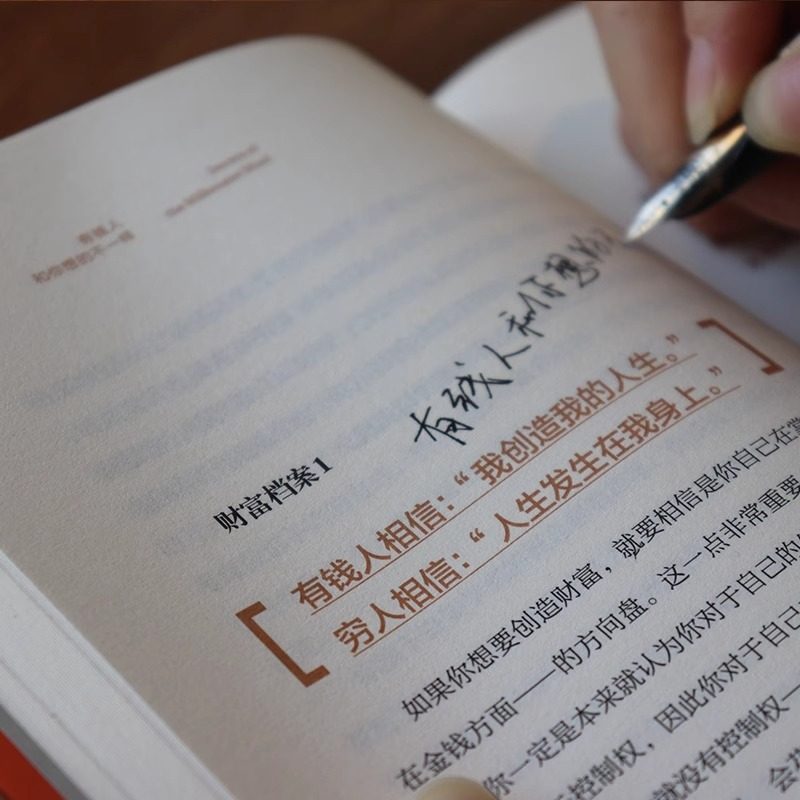 有钱人
和你想的不一样
Secrets of
the Millionaire Mind
有钱人和你想的不
财富档案1
有钱人相信：“我创造我的人生。”
穷人相信：“人生发生在我身上。”
如果你想要创造财富，就要相信是你自己在掌
在金钱方面——的方向盘。这一点非常重要
你一定是本来就认为你对于自己的
控制权，因此你对于自己
就没有控制权——
会花